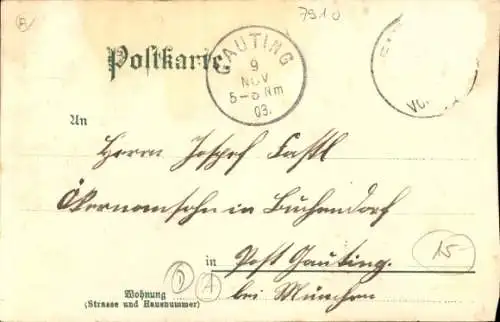 7910
Postkarte.
GAUTING
9
NOV
5-6 Nm
03.
An
Herrn Joseph Fastl
Ökonomenssohn in Buchendorf
in Post Gauting.
bei München
15
Wohnung
(Strasse und Hausnummer)